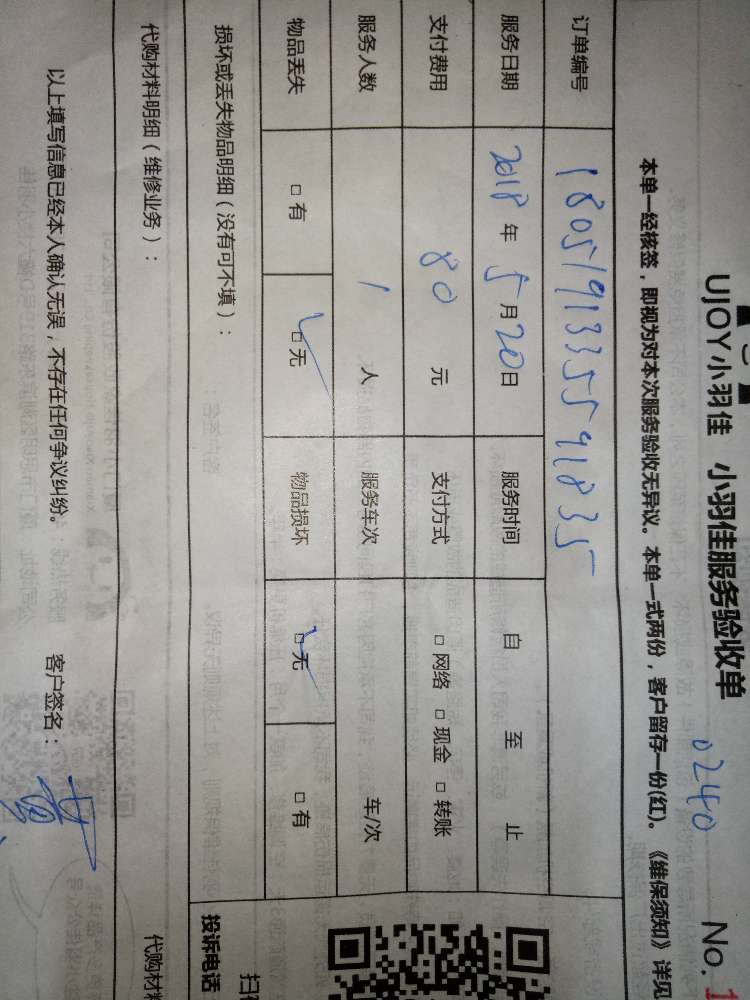 UJOY小羽佳 小羽佳服务验收单
0240 No.1
本单一经核签，即视为对本次服务验收无异议。本单一式两份，客户留存一份(红)。《维保须知》详见
订单编号 1805191335591835
服务日期 2018年5月20日 服务时间 自 至 止
支付费用 80元 支付方式 □网络 □现金 □转账
服务人数 1人 服务车次 车/次
物品丢失 □有 □无 物品损坏 □无 □有
损坏或丢失物品明细（没有可不填）：
投诉电话
扫
代购材料明细（维修业务）：
代购材料
以上填写信息已经本人确认无误，不存在任何争议纠纷。 客户签名：